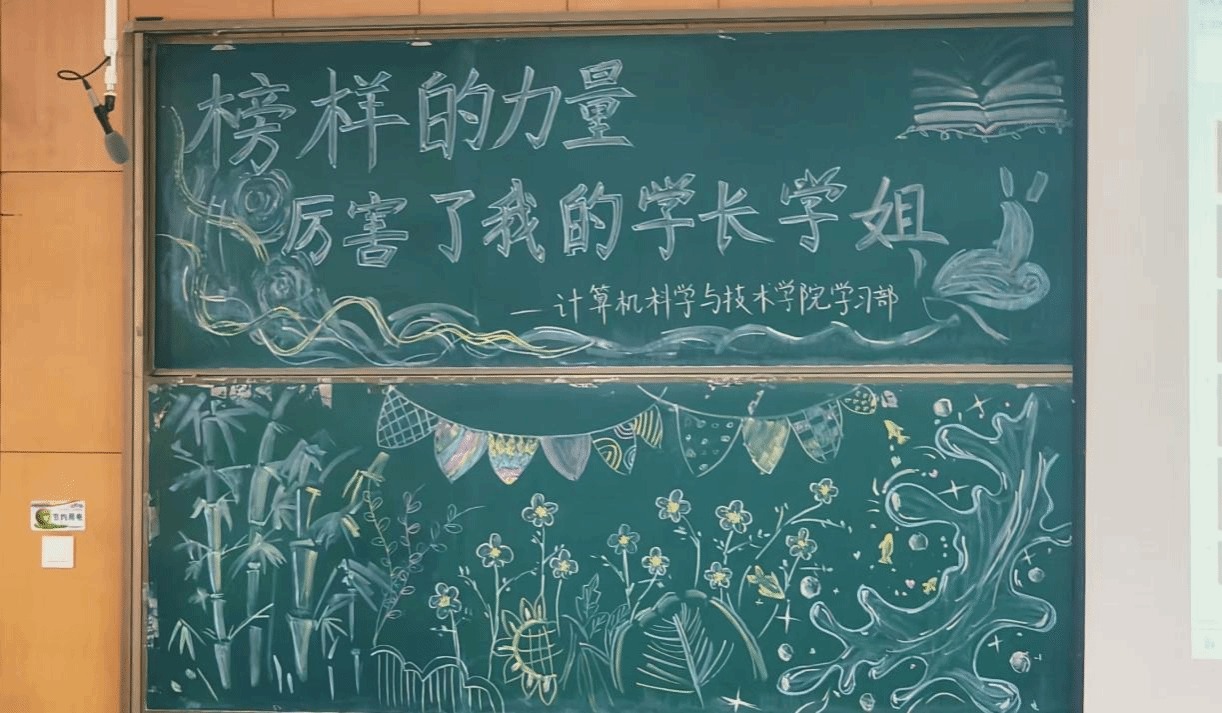 榜样的力量
厉害了我的学长学姐
—计算机科学与技术学院学习部
节约用电